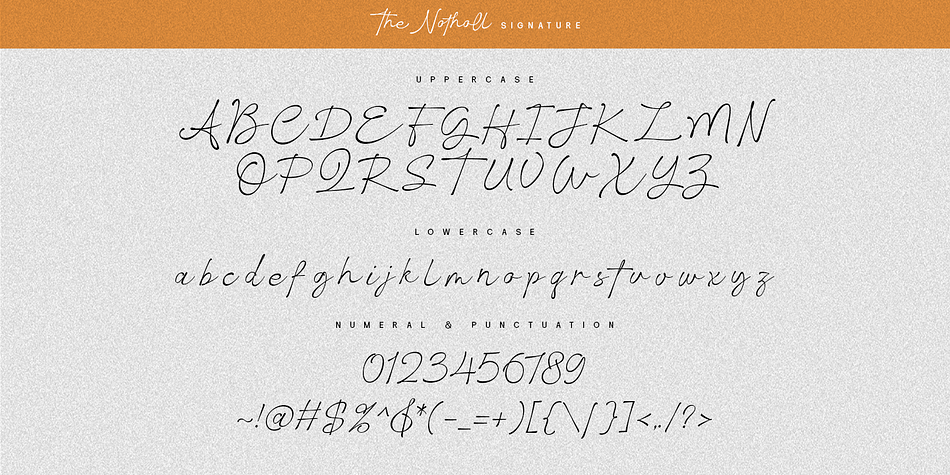 The Notholl SIGNATURE
UPPERCASE
ABCDEFGHIJKLMN
OPQRSTUVWXYZ
LOWERCASE
abcdefghijklmnopqrstuvwxyz
NUMERAL & PUNCTUATION
0123456789
~!@#$%^&*(-_=+)[{\|}]<,./?>